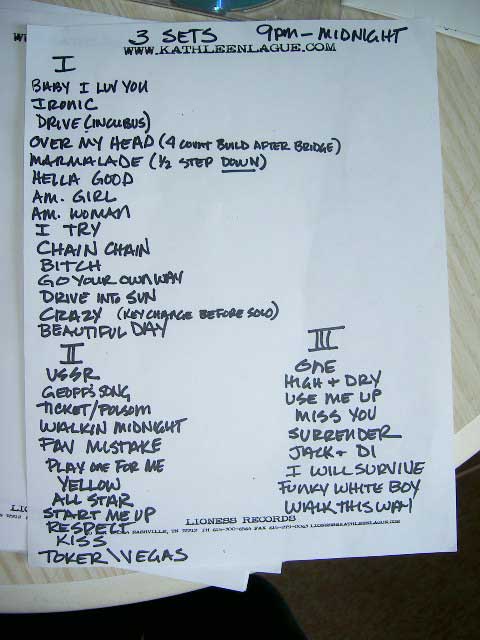 3 SETS 9PM - MIDNIGHT
WWW.KATHLEENLAGUE.COM
I
BABY I LUV YOU
IRONIC
DRIVE (INCUBUS)
OVER MY HEAD (4 COUNT BUILD AFTER BRIDGE)
MARMALADE (1/2 STEP DOWN)
HELLA GOOD
AM. GIRL
AM. WOMAN
I TRY
CHAIN CHAIN
BITCH
GO YOUR OWN WAY
DRIVE INTO SUN
CRAZY (KEY CHANGE BEFORE SOLO)
BEAUTIFUL DAY
II
USSR
GEOFF'S SONG
TICKET/FOLSOM
WALKIN MIDNIGHT
FAV MISTAKE
PLAY ONE FOR ME
YELLOW
ALL STAR
START ME UP
RESPECT
KISS
TOKER\VEGAS
III
ONE
HIGH + DRY
USE ME UP
MISS YOU
SURRENDER
JACK + DI
I WILL SURVIVE
FUNKY WHITE BOY
WALK THIS WAY
LIONESS RECORDS
NASHVILLE, TN